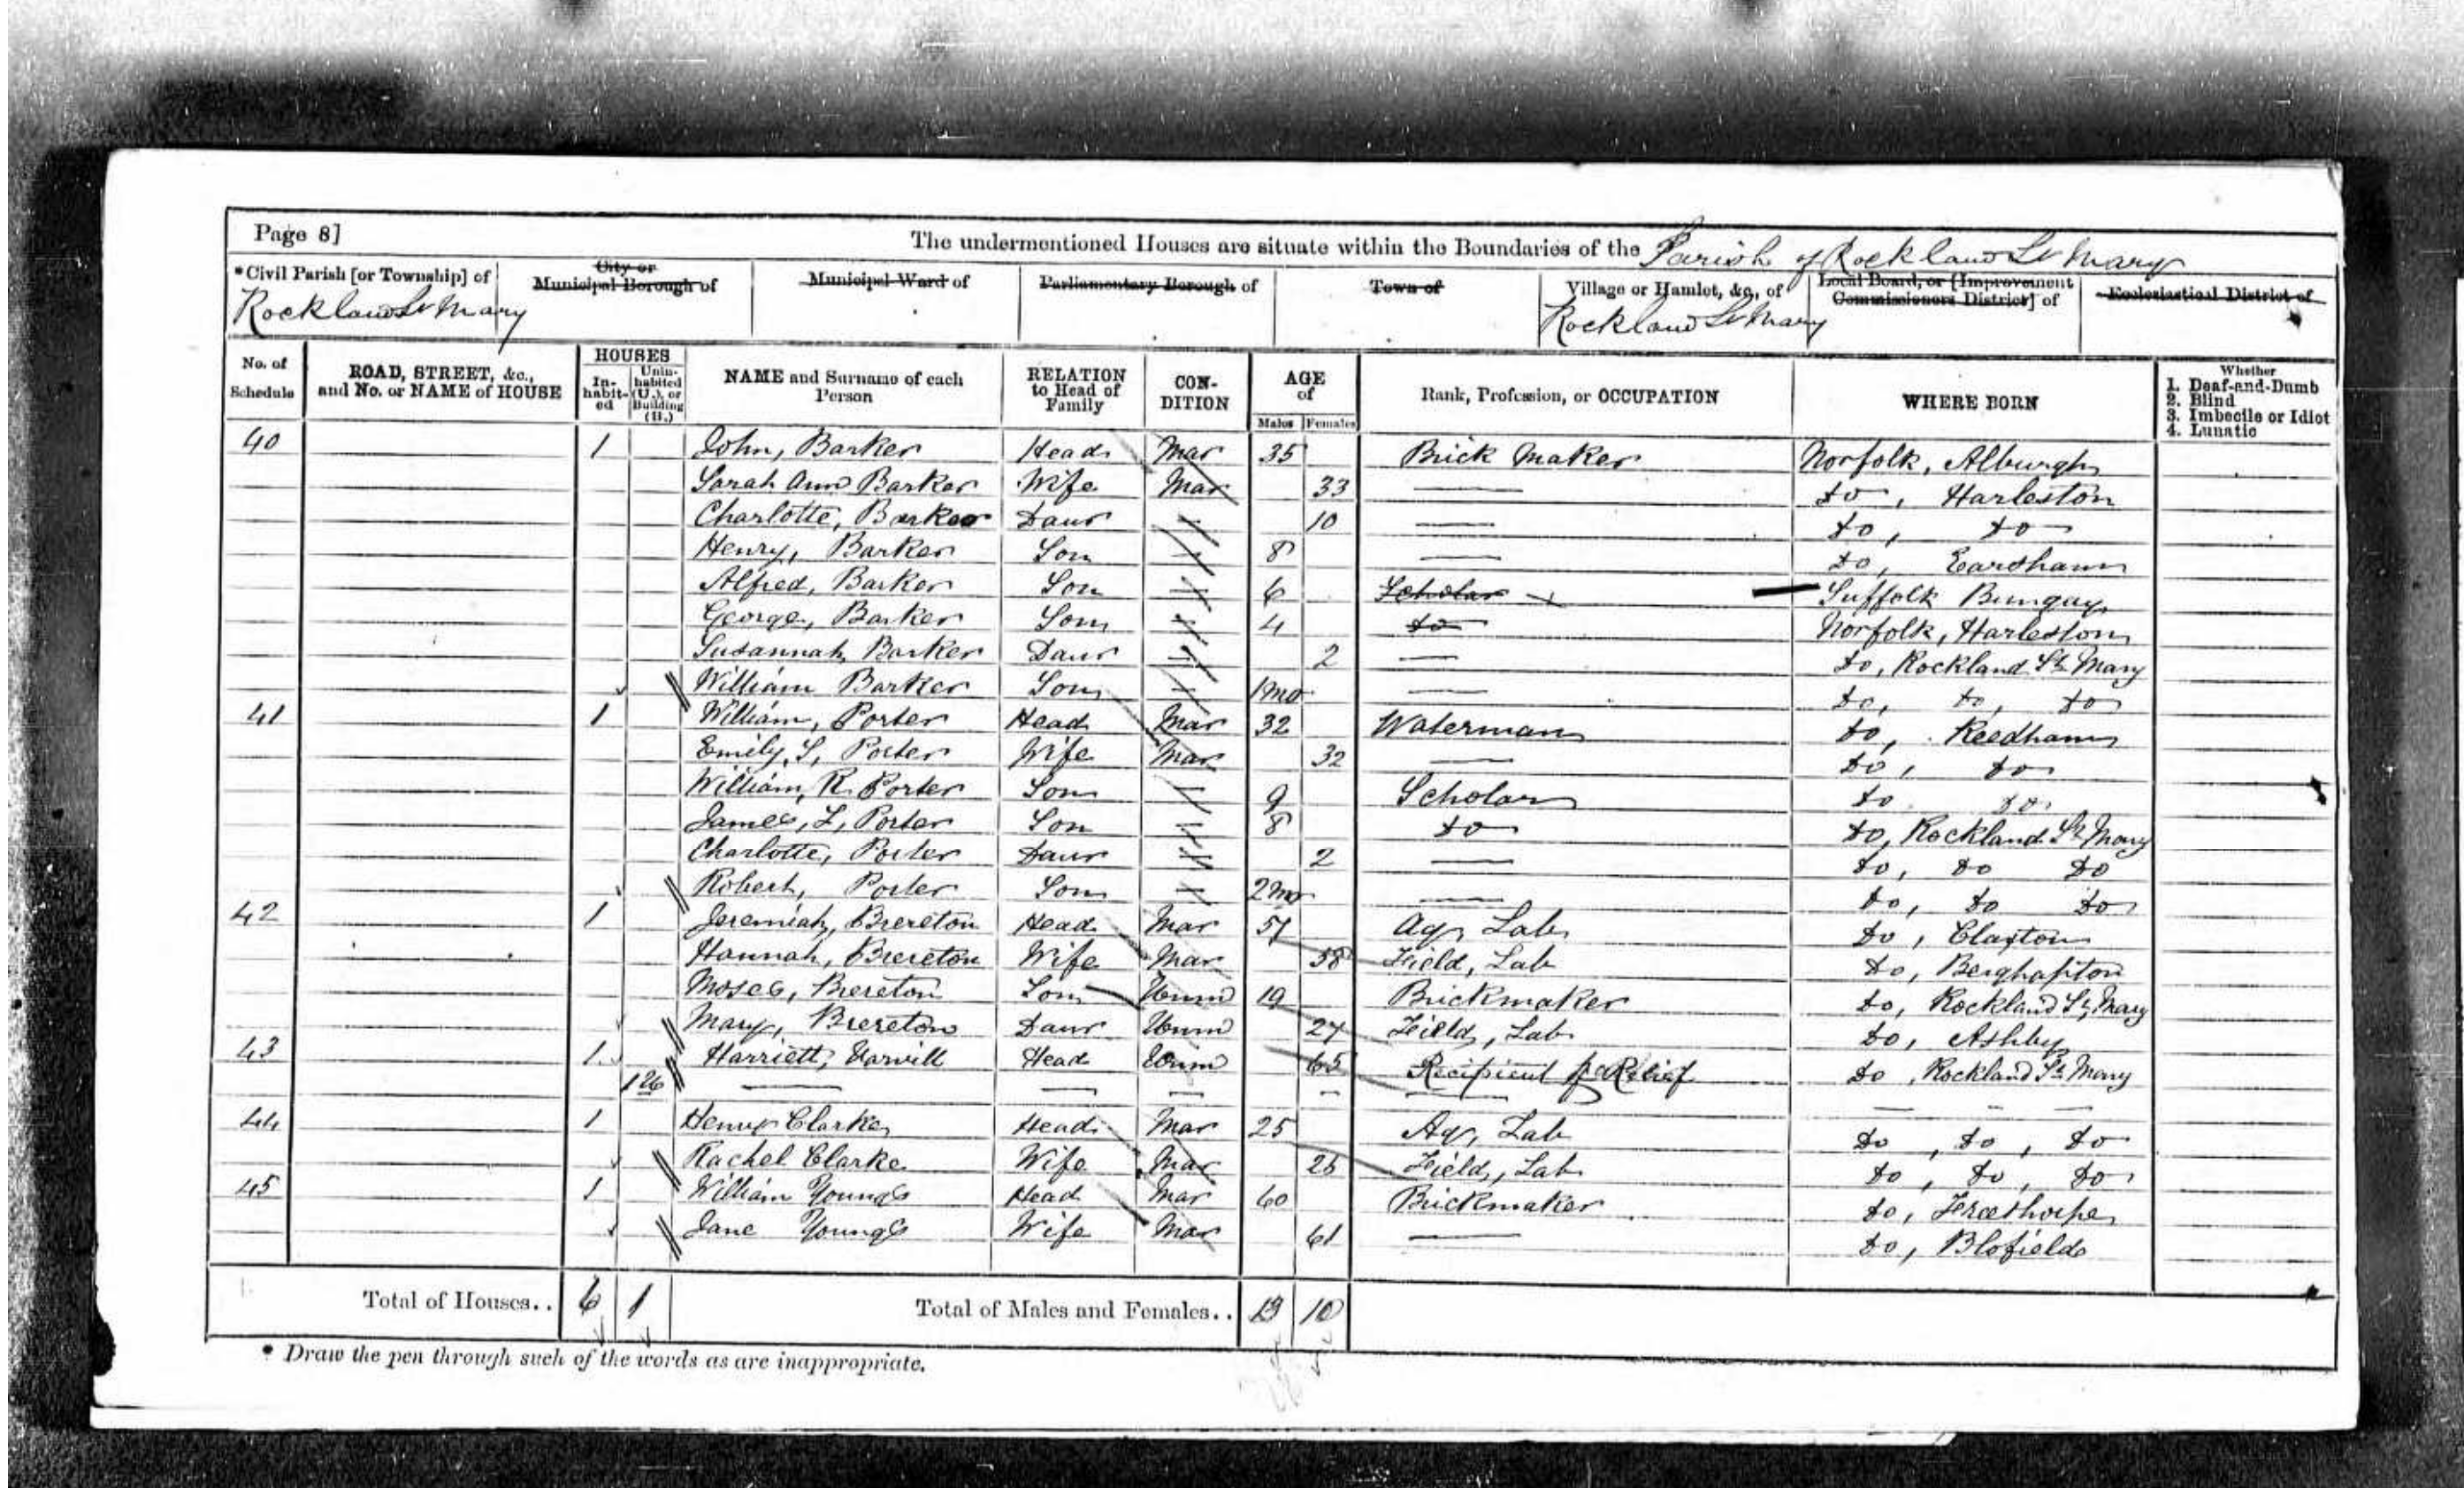 Page 8]
The undermentioned Houses are situate within the Boundaries of the Parish of Rockland St Mary
*Civil Parish [or Township] of City or Municipal Borough of Municipal Ward of Parliamentary Borough of Town of Village or Hamlet, &c., of Local Board, or [Improvement Commissioners District] of Ecclesiastical District of
Rockland St Mary Rockland St Mary
No. of Schedule ROAD, STREET, &c., and No. or NAME of HOUSE HOUSES In-habit-ed Unin-habited (U.), or Building (B.) NAME and Surname of each Person RELATION to Head of Family CON-DITION AGE of Males Females Rank, Profession, or OCCUPATION WHERE BORN Whether 1. Deaf-and-Dumb 2. Blind 3. Imbecile or Idiot 4. Lunatic
40 1 John, Barker Head Mar 35 Brick Maker Norfolk, Alburgh
Sarah Ann Barker Wife Mar 33 — do, Harleston
Charlotte, Barker Daur 10 — do, do
Henry, Barker Son 8 — do, Earsham
Alfred, Barker Son 6 Scholar Suffolk Bungay
George, Barker Son 4 do Norfolk, Harleston
Susannah, Barker Daur 2 — do, Rockland St Mary
William Barker Son 1mo — do, do, do
41 1 William, Porter Head Mar 32 Waterman do, Reedham
Emily, S, Porter Wife Mar 32 — do, do
William, R. Porter Son 9 Scholar do do
James, Porter Son 8 do do, Rockland St Mary
Charlotte, Porter Daur 2 — do, do do
Robert, Porter Son 2mo — do, do do
42 1 Jeremiah, Brereton Head Mar 57 Ag, Lab do, Claxton
Hannah, Brereton Wife Mar 58 Field, Lab do, Berghapton
Moses, Brereton Son Unm 19 Brickmaker do, Rockland St, Mary
Mary, Brereton Daur Unm 27 Field, Lab do, Ashby
43 1 Harriett, Head Unm 65 Recipient Relief do, Rockland St Mary
— — — — — — — —
44 1 Henry Clarke Head Mar 25 Ag, Lab do, do, do
Rachel Clarke Wife Mar 26 Field, Lab do, do, do
45 1 William Youngs Head Mar 60 Brickmaker do, Freethorpe
Jane Youngs Wife Mar 61 — do, Blofield
Total of Houses.. 6 1 Total of Males and Females.. 13 10
* Draw the pen through such of the words as are inappropriate.